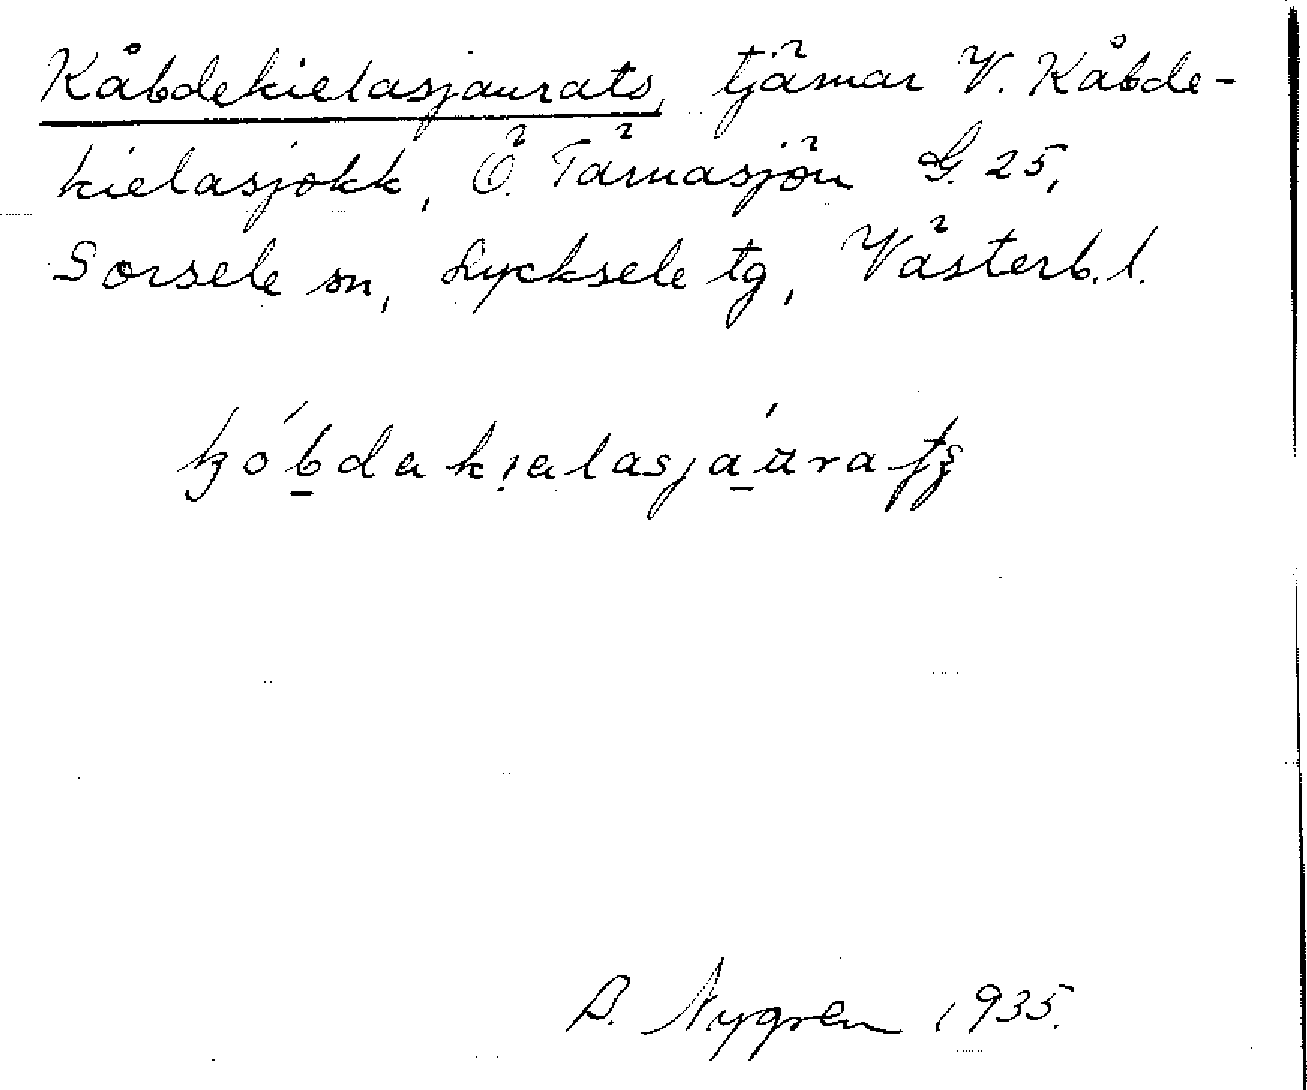 Kåbdekielasjaurats, tjärnar V. Kåbde-
kielasjokk, Ö. Tärnasjön G. 25,
Sorsele sn, Lycksele tg, Västerb. l.
A. Nygren 1935.